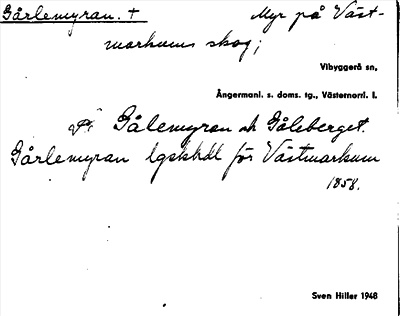 Gårlemyran. + Myr på Väst-
markums skog;
Vibyggerå sn,
Ångermanl. s. doms. tg., Västernorrl. l.
Gålemyran ok Gåleberget.
Gårlemyran lgskhdl för Västmarkum
1858.
Sven Hiller 1948